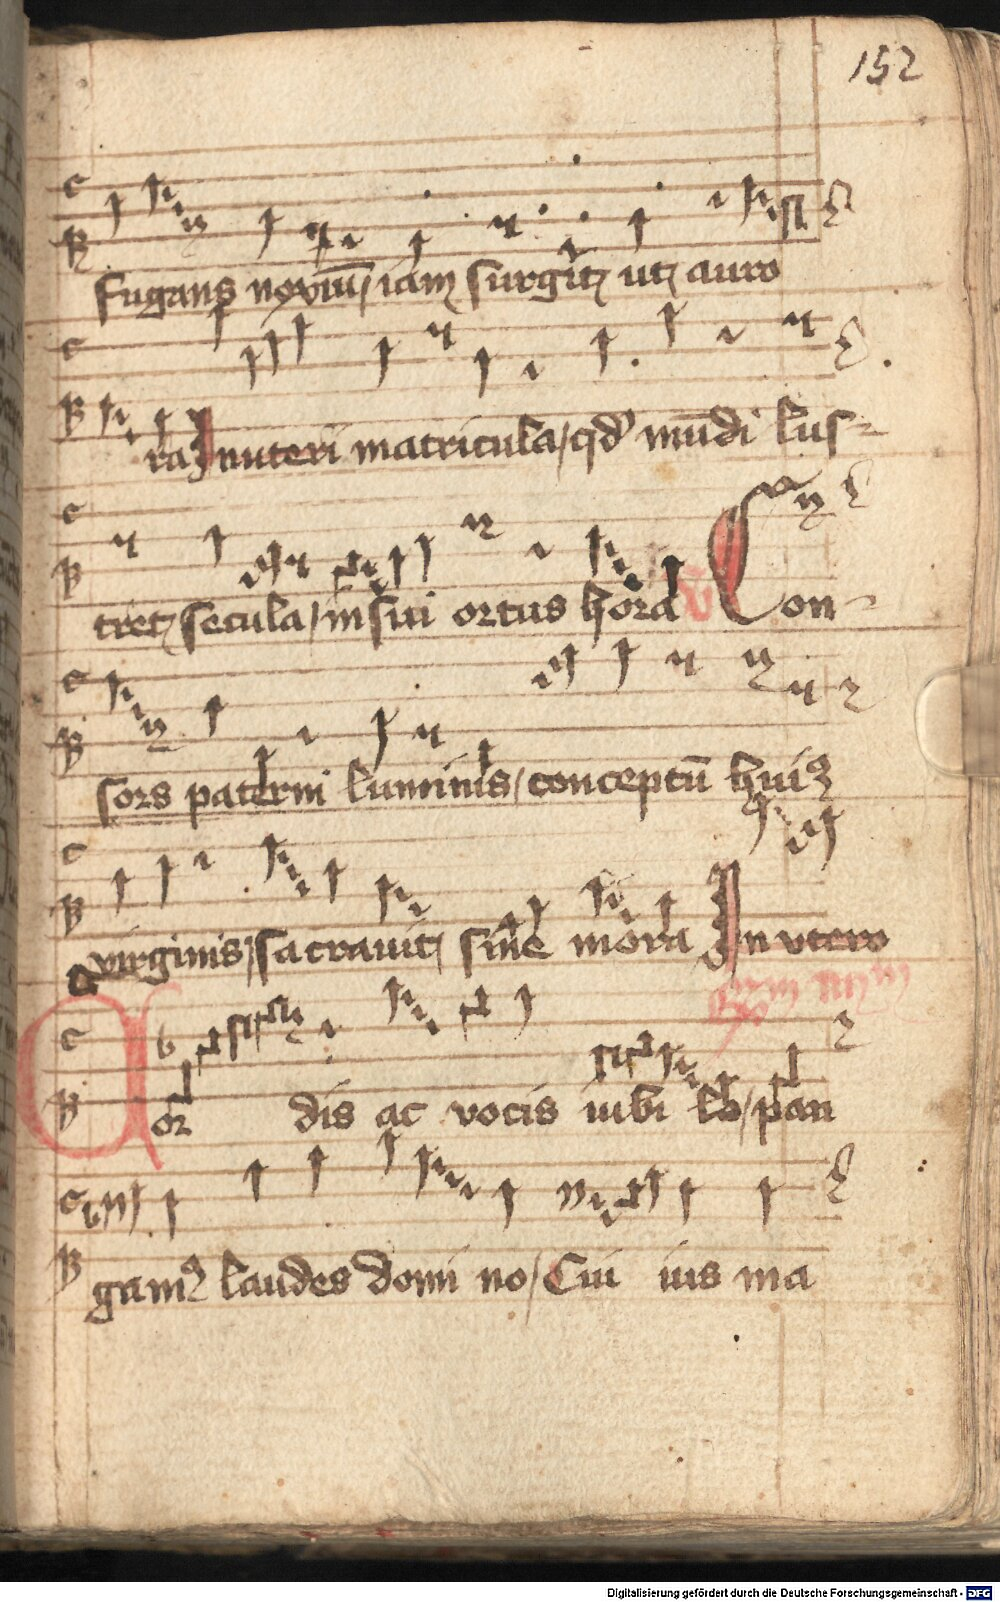 152
fugans noxium / iam surgit ut auro
ra In uteri matricula / qd mundi lus-
tret secula / in sui ortus hora V Con-
sors paterni luminis / conceptū huiꝰ
virginis / sacravit sine mora In utero
Cor dis ac vocis iubi lo / pan
gamꝰ laudes domi no / Cui ius ma
Digitalisierung gefördert durch die Deutsche Forschungsgemeinschaft - DFG